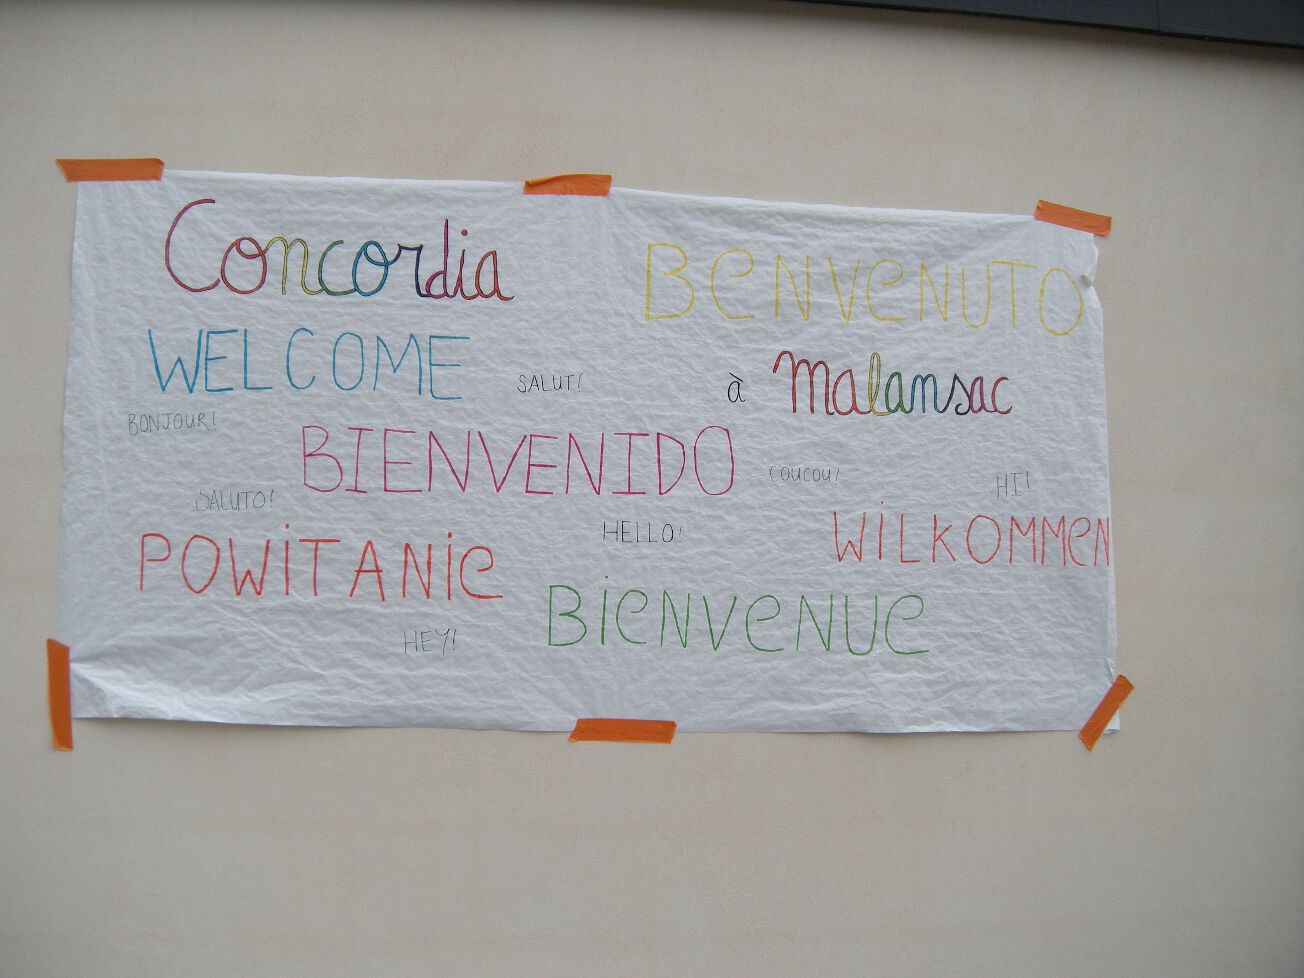 Concordia
BENVENUTO
WELCOME
SALUT!
à Malansac
BONJOUR!
BIENVENIDO
COUCOU!
SALUTO!
HI!
HELLO!
WILKOMMEN
POWITANIE
BIENVENUE
HEY!